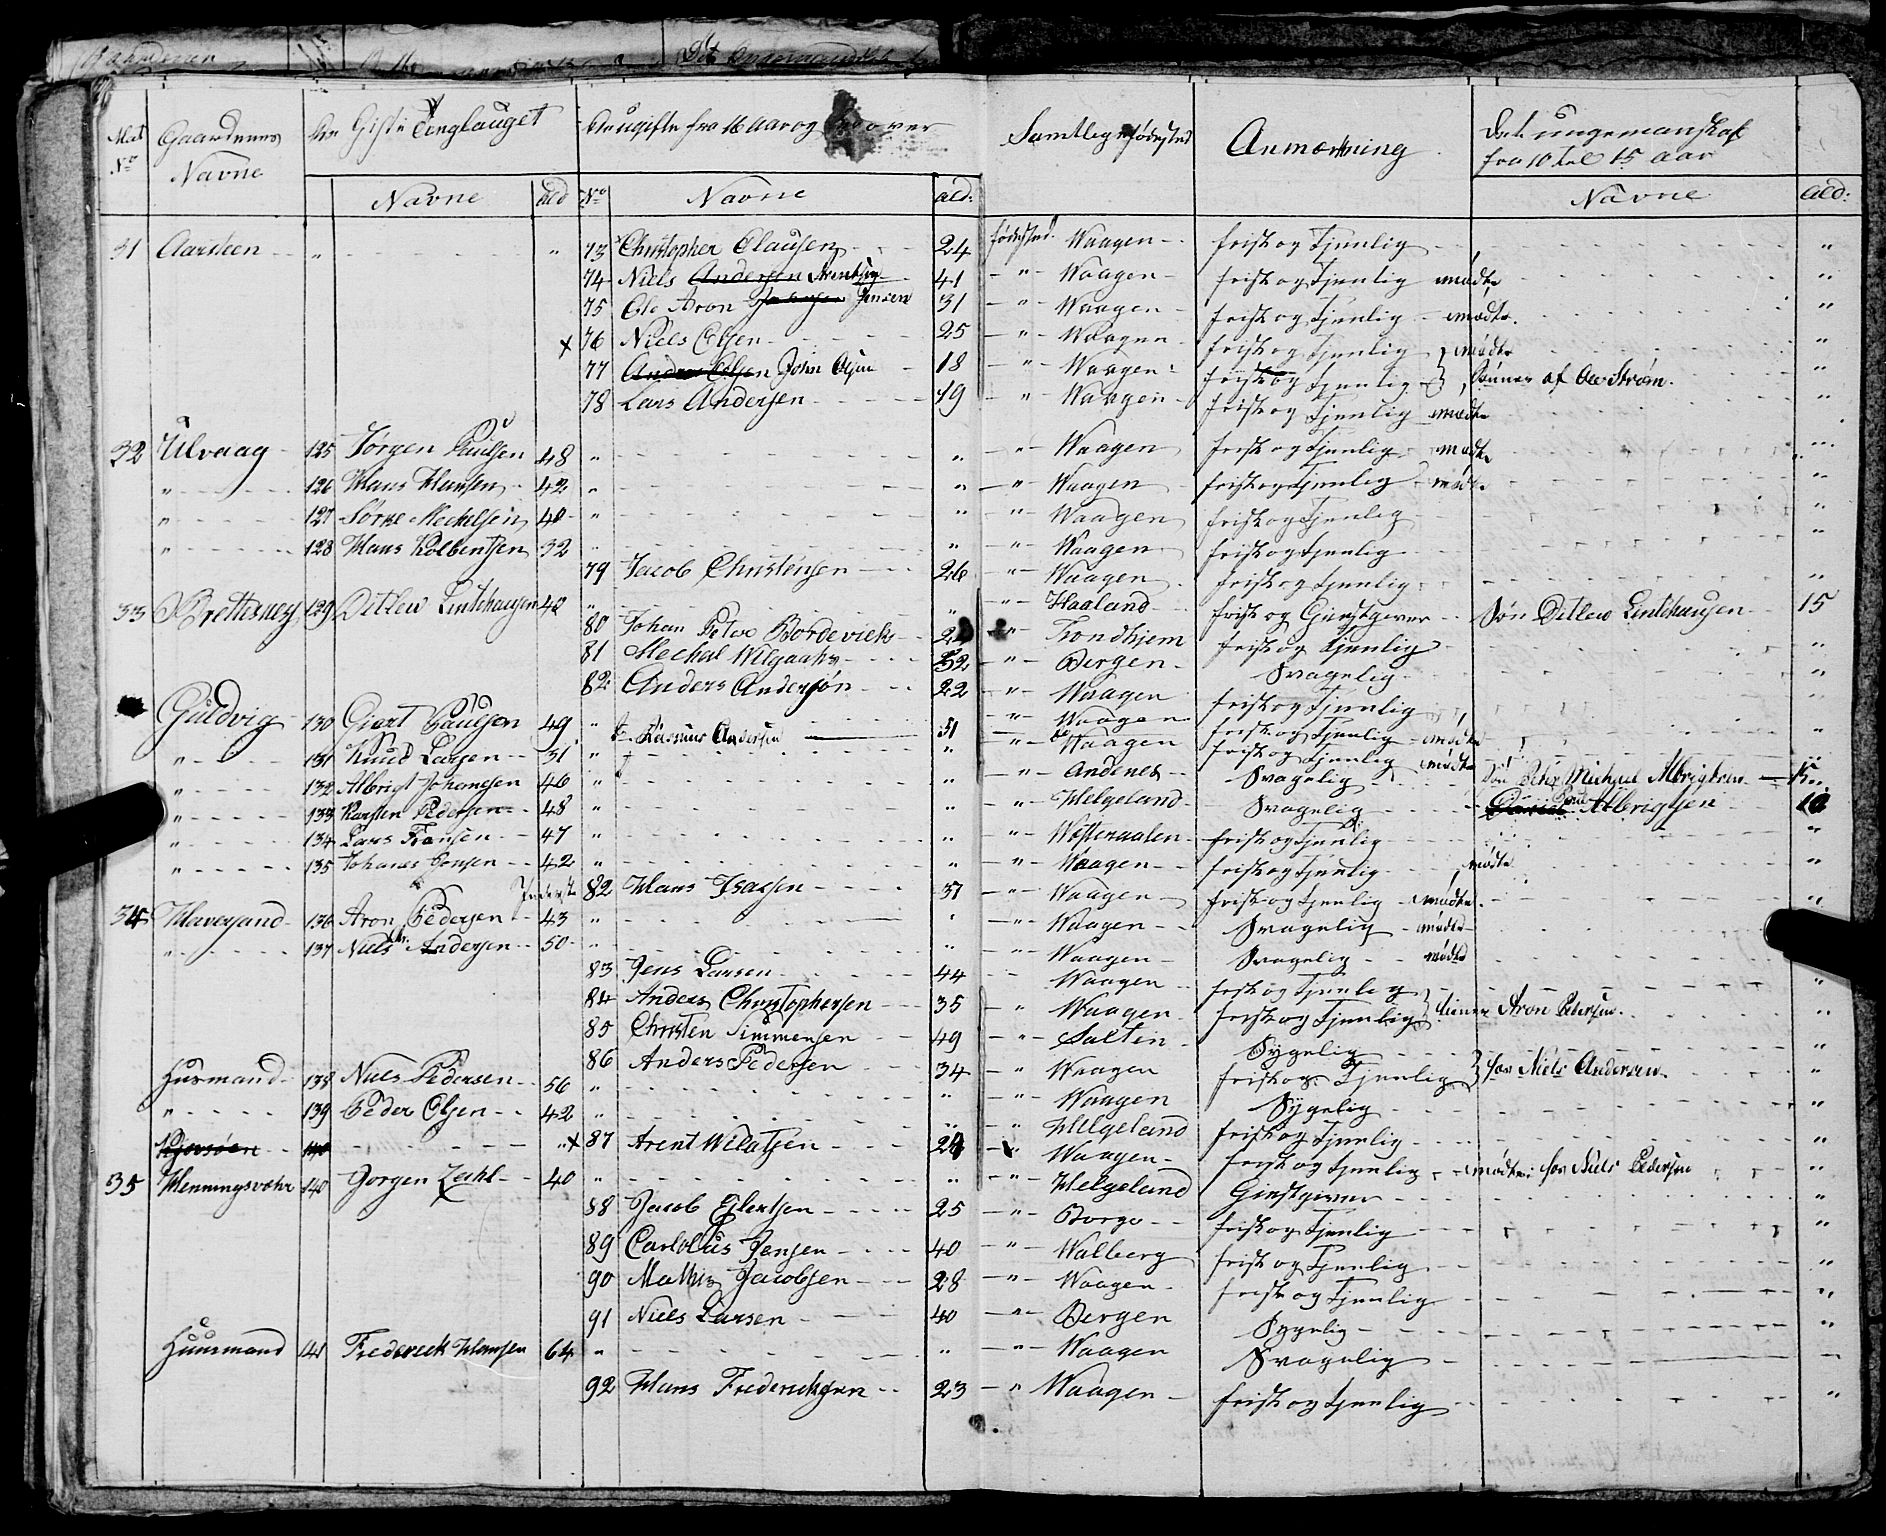 Mat No | Gaardenes Navne | De Gifte i Tinglauget | De ugifte fra 16 Aar og over | Samtliges fødested | Anmærkning | Det unge mandskab fra 10 til 15 Aar
Navne | Ald | No | Navne | ald: | Navne | ald:
31 Aarsteen " " 73 Christopher Clausen 24 fødested Waagen frisk og Tjenlig "
74 Niels Andersen Arentsen 41 " Waagen frisk og Tjenlig mødte "
75 Ole Aron Jensen 31 " Waagen frisk og Tjenlig mødte "
x 76 Niels Olsen 25 " Waagen frisk og Tjenlig mødte "
77 Anders Olsen John Olsen 18 " Waagen frisk og Tjenlig Sønner af Ole Strøm "
78 Lars Andersen 19 " Waagen frisk og Tjenlig mødte "
32 Ulvaag 125 Jørgen Paulsen 48 " " " Waagen frisk og Tjenlig mødte "
" 126 Hans Hansen 42 " " " Waagen frisk og Tjenlig mødte "
" 127 Sørne Meckelsen 40 " " " Waagen frisk og Tjenlig "
" 128 Hans Kolbentsen 32 " " " Waagen frisk og Tjenlig "
79 Jacob Christensen 26 " Waagen frisk og Tjenlig "
33 Brettesnes 129 Ditlew Lintchausen 42 " " " Haaland frisk og Giestgiver Søn Ditlew Lintchausen 15
80 Johan Peter Bordevick " Trondhjem frisk og Tjenlig "
81 Mechal Wilgaahs 52 " Bergen Svagelig "
82 Anders Andersøn 22 " Waagen frisk og Tjenlig "
Guldvig 130 Giert Paulsen 49 " " Waagen frisk og Tjenlig mødte "
Rasmus Andersen 51
" 131 Knud Larsen 31 " " " Waagen frisk og Tjenlig mødte "
" 132 Albrigt Johansen 46 " " " Andenes Svagelig Søn Peter Michael Albrigtsen 15
" 133 Karsten Pedersen 48 " " " Helgeland Svagelig Albrigtsen 10
" 134 Lars Fransen 47 " " " Westeraalen frisk og Tjenlig "
" 135 Johanes Jensen 42 " " " Waagen frisk og Tjenlig mødte "
Inderste 82 Hans Isacsen 37 " Waagen frisk og Tjenlig mødte "
34 Haversand 136 Aron Pedersen 43 " " " Waagen Svagelig mødte
" 137 Niels Andersen 50 " " " Waagen Svagelig mødte
83 Jens Larsen 44 Waagen frisk og Tjenlig "
84 Anders Christophersen 35 " Waagen frisk og Tjenlig tiener Aron Pedersen "
85 Christen Simmensen 49 " Salten Sygelig "
86 Anders Pedersen 34 " Waagen frisk og Tjenlig for Niels Andersen "
Husmand 138 Niels Pedersen 56 " " " Waagen Sygelig "
" 139 Peder Olsen 42 " " " Helgeland frisk og Tjenlig "
140 " x 87 Arent Wilatsen 24 Waagen frisk og Tjenlig mødte: for Niels Pedersen "
35 Henningsvahr 140 Jorgen Zahl 40 " " " Helgeland Giestgiver "
88 Jacob Ejlertsen 25 " Borge frisk og Tjenlig "
89 Carlolus Jensen 40 " Walberg frisk og Tjenlig "
90 Mathis Jacobsen 28 " Waagen frisk og Tjenlig "
91 Niels Larsen 40 " Bergen Sygelig "
Huusmand 141 Frederick Hansen 64 " " " Waagen Svagelig
92 Hans Fredericksen 23 " Waagen frisk og Tjenlig "